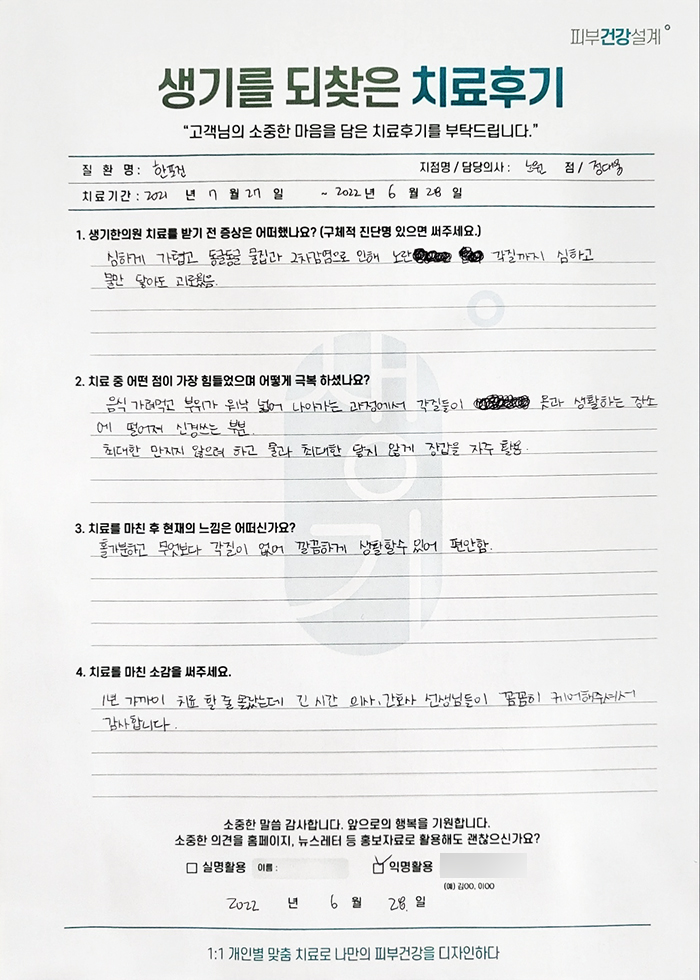 피부건강설계
생기를 되찾은 치료후기
“고객님의 소중한 마음을 담은 치료후기를 부탁드립니다.”
질 환 명 : 한포진 지점명 / 담당의사 : 노원 점 /
치료기간 : 2021 년 7 월 27 일 ~ 2022 년 6 월 28 일
1. 생기한의원 치료를 받기 전 증상은 어떠했나요? (구체적 진단명 있으면 써주세요.)
심하게 가렵고 동글동글 물집과 2차감염으로 인해 노란 각질까지 심하고
물만 닿아도 괴로웠음.
2. 치료 중 어떤 점이 가장 힘들었으며 어떻게 극복 하셨나요?
음식 가려먹고 부위가 워낙 넓어 나아가는 과정에서 각질들이 옷과 생활하는 장소
에 떨어져 신경쓰는 부분.
최대한 만지지 않으려 하고 물과 최대한 닿지 않게 장갑을 자주 활용.
3. 치료를 마친 후 현재의 느낌은 어떠신가요?
홀가분하고 무엇보다 각질이 없어 깔끔하게 생활할수 있어 편안함.
4. 치료를 마친 소감을 써주세요.
1년 가까이 치료 할 줄 몰랐는데 긴 시간 의사, 간호사 선생님들이 꼼꼼히 케어해주셔서
감사합니다.
생기
소중한 말씀 감사합니다. 앞으로의 행복을 기원합니다.
소중한 의견을 홈페이지, 뉴스레터 등 홍보자료로 활용해도 괜찮으신가요?
실명활용 이름 : 익명활용
(예) 김OO, 이OO
2022 년 6 월 28. 일
1:1 개인별 맞춤 치료로 나만의 피부건강을 디자인하다